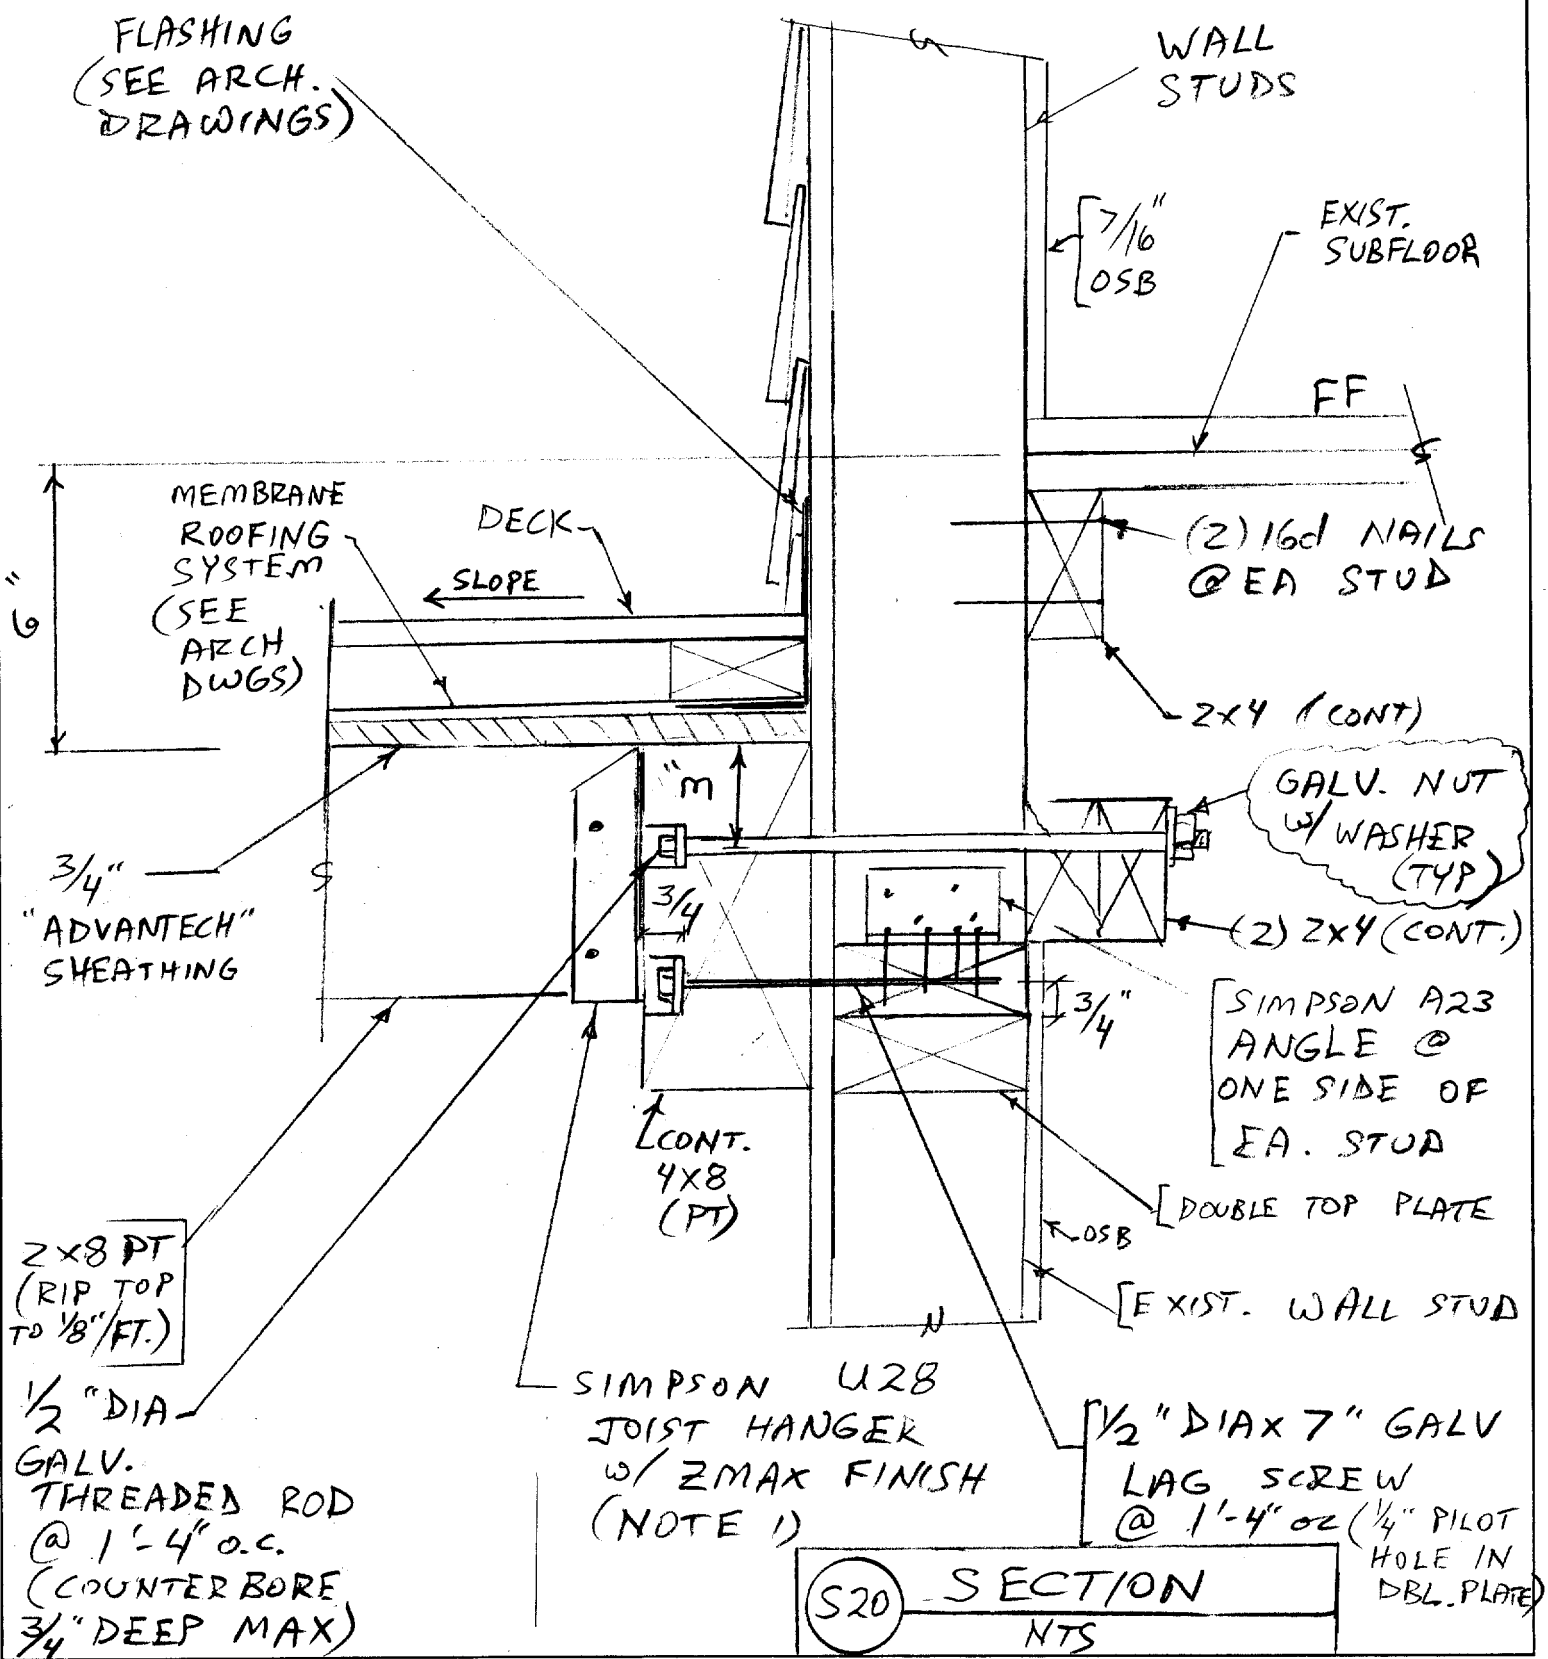 FLASHING
(SEE ARCH.
DRAWINGS)
WALL
STUDS
7/16"
OSB
EXIST.
SUBFLOOR
FF
MEMBRANE
ROOFING
SYSTEM
(SEE
ARCH
DWGS)
DECK
SLOPE
6"
(2) 16d NAILS
@ EA STUD
2x4 (CONT)
GALV. NUT
W/ WASHER
(TYP)
(2) 2x4 (CONT.)
3"
3/4
3/4"
3/4"
"ADVANTECH"
SHEATHING
SIMPSON A23
ANGLE @
ONE SIDE OF
EA. STUD
CONT.
4X8
(PT)
DOUBLE TOP PLATE
OSB
EXIST. WALL STUD
2x8 PT
(RIP TOP
TO 1/8"/FT.)
1/2"DIA
GALV.
THREADED ROD
@ 1'-4" o.c.
(COUNTERBORE
3/4" DEEP MAX)
SIMPSON U28
JOIST HANGER
W/ ZMAX FINISH
(NOTE 1)
1/2" DIA x 7" GALV
LAG SCREW
@ 1'-4" oc (1/4" PILOT
HOLE IN
DBL. PLATE)
S20 SECTION
NTS